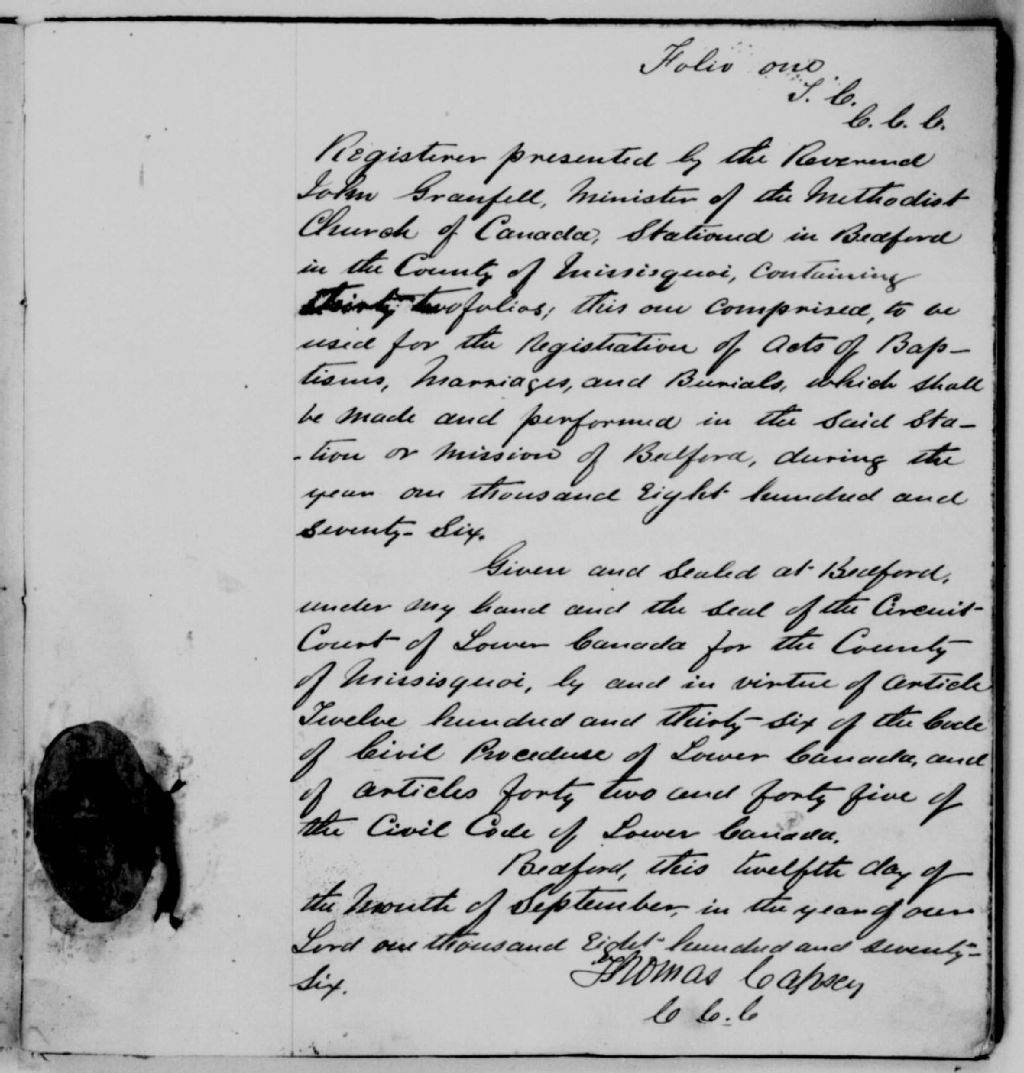 Folio one
T. C.
C. C. C.
Register presented by the Reverend
John Granfell, Minister of the Methodist
Church of Canada, Stationed in Bedford
in the County of Missisquoi, Containing
thirty two folios; this one comprised, to be
used for the Registration of Acts of Bap-
tisms, Marriages, and Burials, which shall
be made and performed in the said Sta-
-tion or Mission of Bedford, during the
year one thousand Eight hundred and
Seventy-Six.
Given and Sealed at Bedford,
under my hand and the seal of the Circuit
Court of Lower Canada for the County
of Missisquoi, by and in virtue of Article
Twelve hundred and thirty-Six of the Code
of Civil Procedure of Lower Canada, and
of articles forty two and forty five of
the Civil Code of Lower Canada.
Bedford, this twelfth day of
the Month of September, in the year of our
Lord one thousand Eight hundred and seventy-
Six.
Thomas Capsey
C C. C